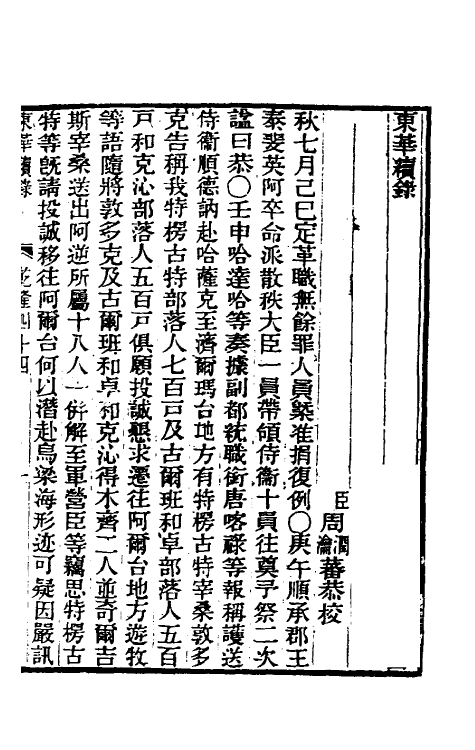 東華續錄
臣周潤蕃瀹恭校
秋七月己巳定革職無餘罪人員槩准捐復例〇庚午順承郡王
泰斐英阿卒命派散秩大臣一員帶領侍衞十員往奠予祭二次
諡曰恭〇壬申哈達哈等奏據副都統職銜唐喀祿等報稱護送
侍衞順德訥赴哈薩克至濟爾瑪台地方有特楞古特宰桑敦多
克告稱我特楞古特部落人七百戶及古爾班和卓部落人五百
戶和克沁部落人五百戶俱願投誠懇求遷往阿爾台地方遊牧
等語隨將敦多克及古爾班和卓和克沁得木齊二人並奇爾吉
斯宰桑送出阿逆所屬十八人一併解至軍營臣等竊思特楞古
特等既請投誠移往阿爾台何以潛赴烏梁海形迹可疑因嚴訊
東華續錄 乾隆四十四 一